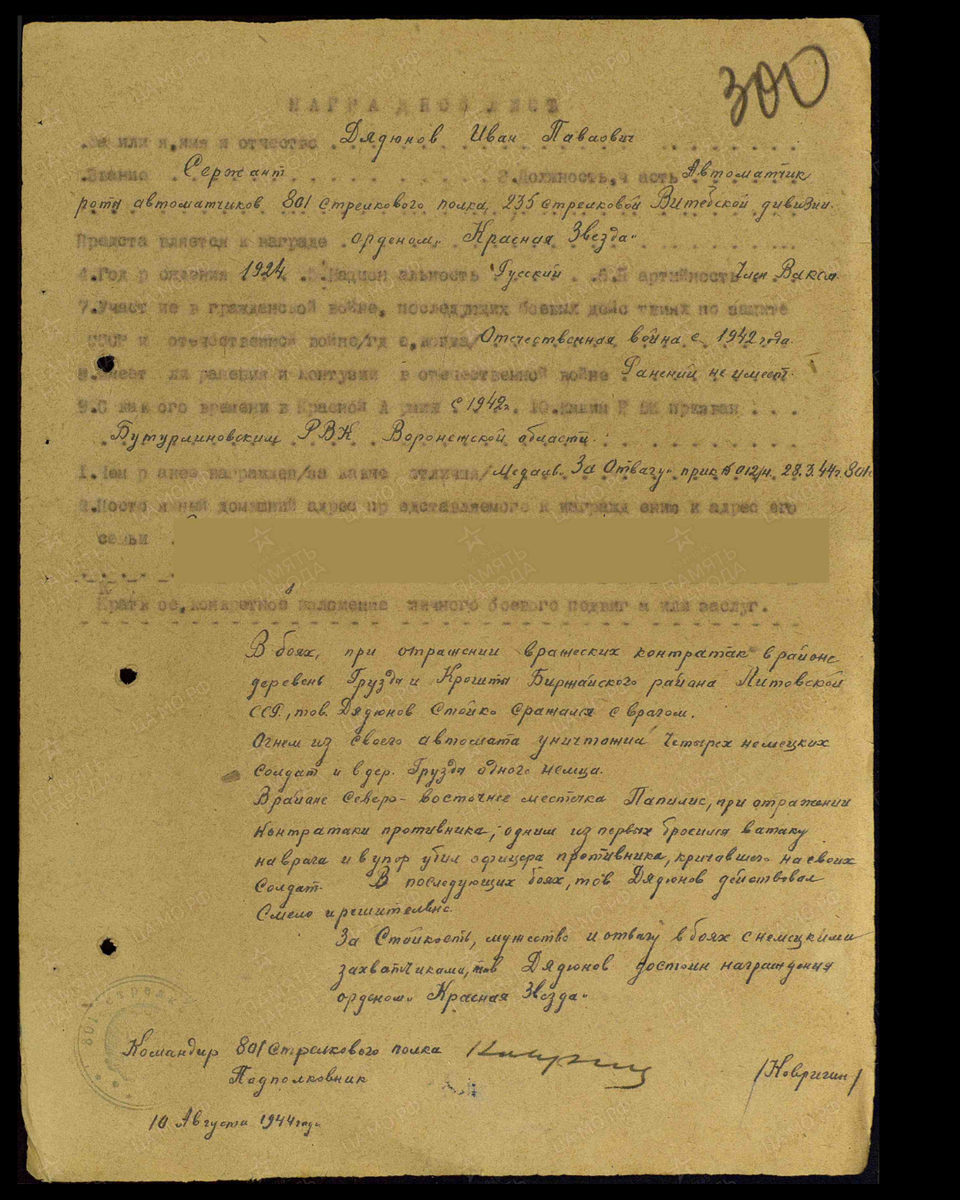 300
НАГРАДНОЙ ЛИСТ
.Фамилия,имя и отчество Дядюнов Иван Павлович
.Звание Сержант 2.Должность,часть Автоматчик
рота автоматчиков 801 Стрелкового полка, 235 Стрелковой Витебской дивизии.
Представляется к награде орденом „Красная Звезда"
4.Год рождения 1924 .5.Национальность Русский .6.Партийность Член Влксм
7.Участие в гражданской войне, последующих боевых действиях по защите
СССР и отечественной войне/где,когда/ Отечественная война с 1942 года.
8.Имеет ли ранения и контузии в отечественной войне Ранений не имеет.
9.С какого времени в Красной Армии С 1942г. 10.Каким РВК призван
Бутурлиновским РВК Воронежской области.
1.Чем ранее награжден/за какие отличия/ Медаль „За Отвагу" прик № 012/н. 28.3.44г. 801
2.Постоянный домашний адрес представляемого к награждению и адрес его
семьи
Краткое,конкретное изложение личного боевого подвига или заслуг.
В боях, при отражении вражеских контратак в районе
деревень Грузда и Крошта Биржайского района Литовской
ССР, тов. Дядюнов Стойко сражался с врагом.
Огнем из своего автомата уничтожил Четырех немецких
солдат и в дер. Грузда одного немца.
В районе Северо-восточнее местечка Папилис, при отражении
контратаки противника, одним из первых бросился в атаку
на врага и в упор убил офицера противника, кричавшего на своих
солдат. В последующих боях, тов Дядюнов действовал
Смело и решительно.
За Стойкость, мужество и отвагу в боях с немецкими
захватчиками, тов Дядюнов достоин награждения
орденом „Красная Звезда"
801 стрелк
Командир 801 Стрелкового полка
Подполковник /Ковригин/
10 Августа 1944 года